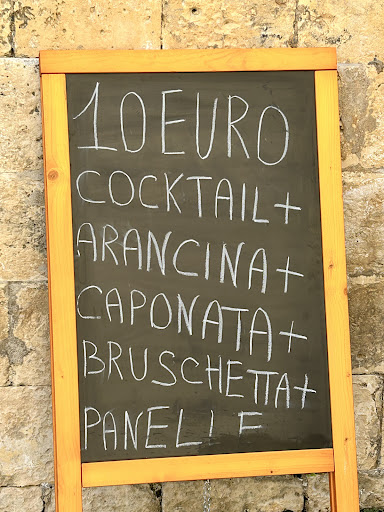 10 EURO
COCKTAIL+
ARANCINA+
CAPONATA+
BRUSCHETTA+
PANELLE